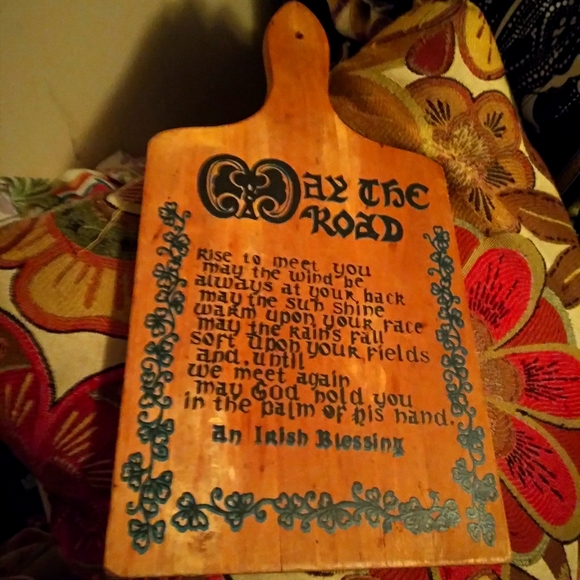 May the
Road
rise to meet you
may the wind be
always at your back
may the sun shine
warm upon your face
may the rains fall
soft upon your fields
and, until
we meet again
may God hold you
in the palm of his hand.
An Irish Blessing